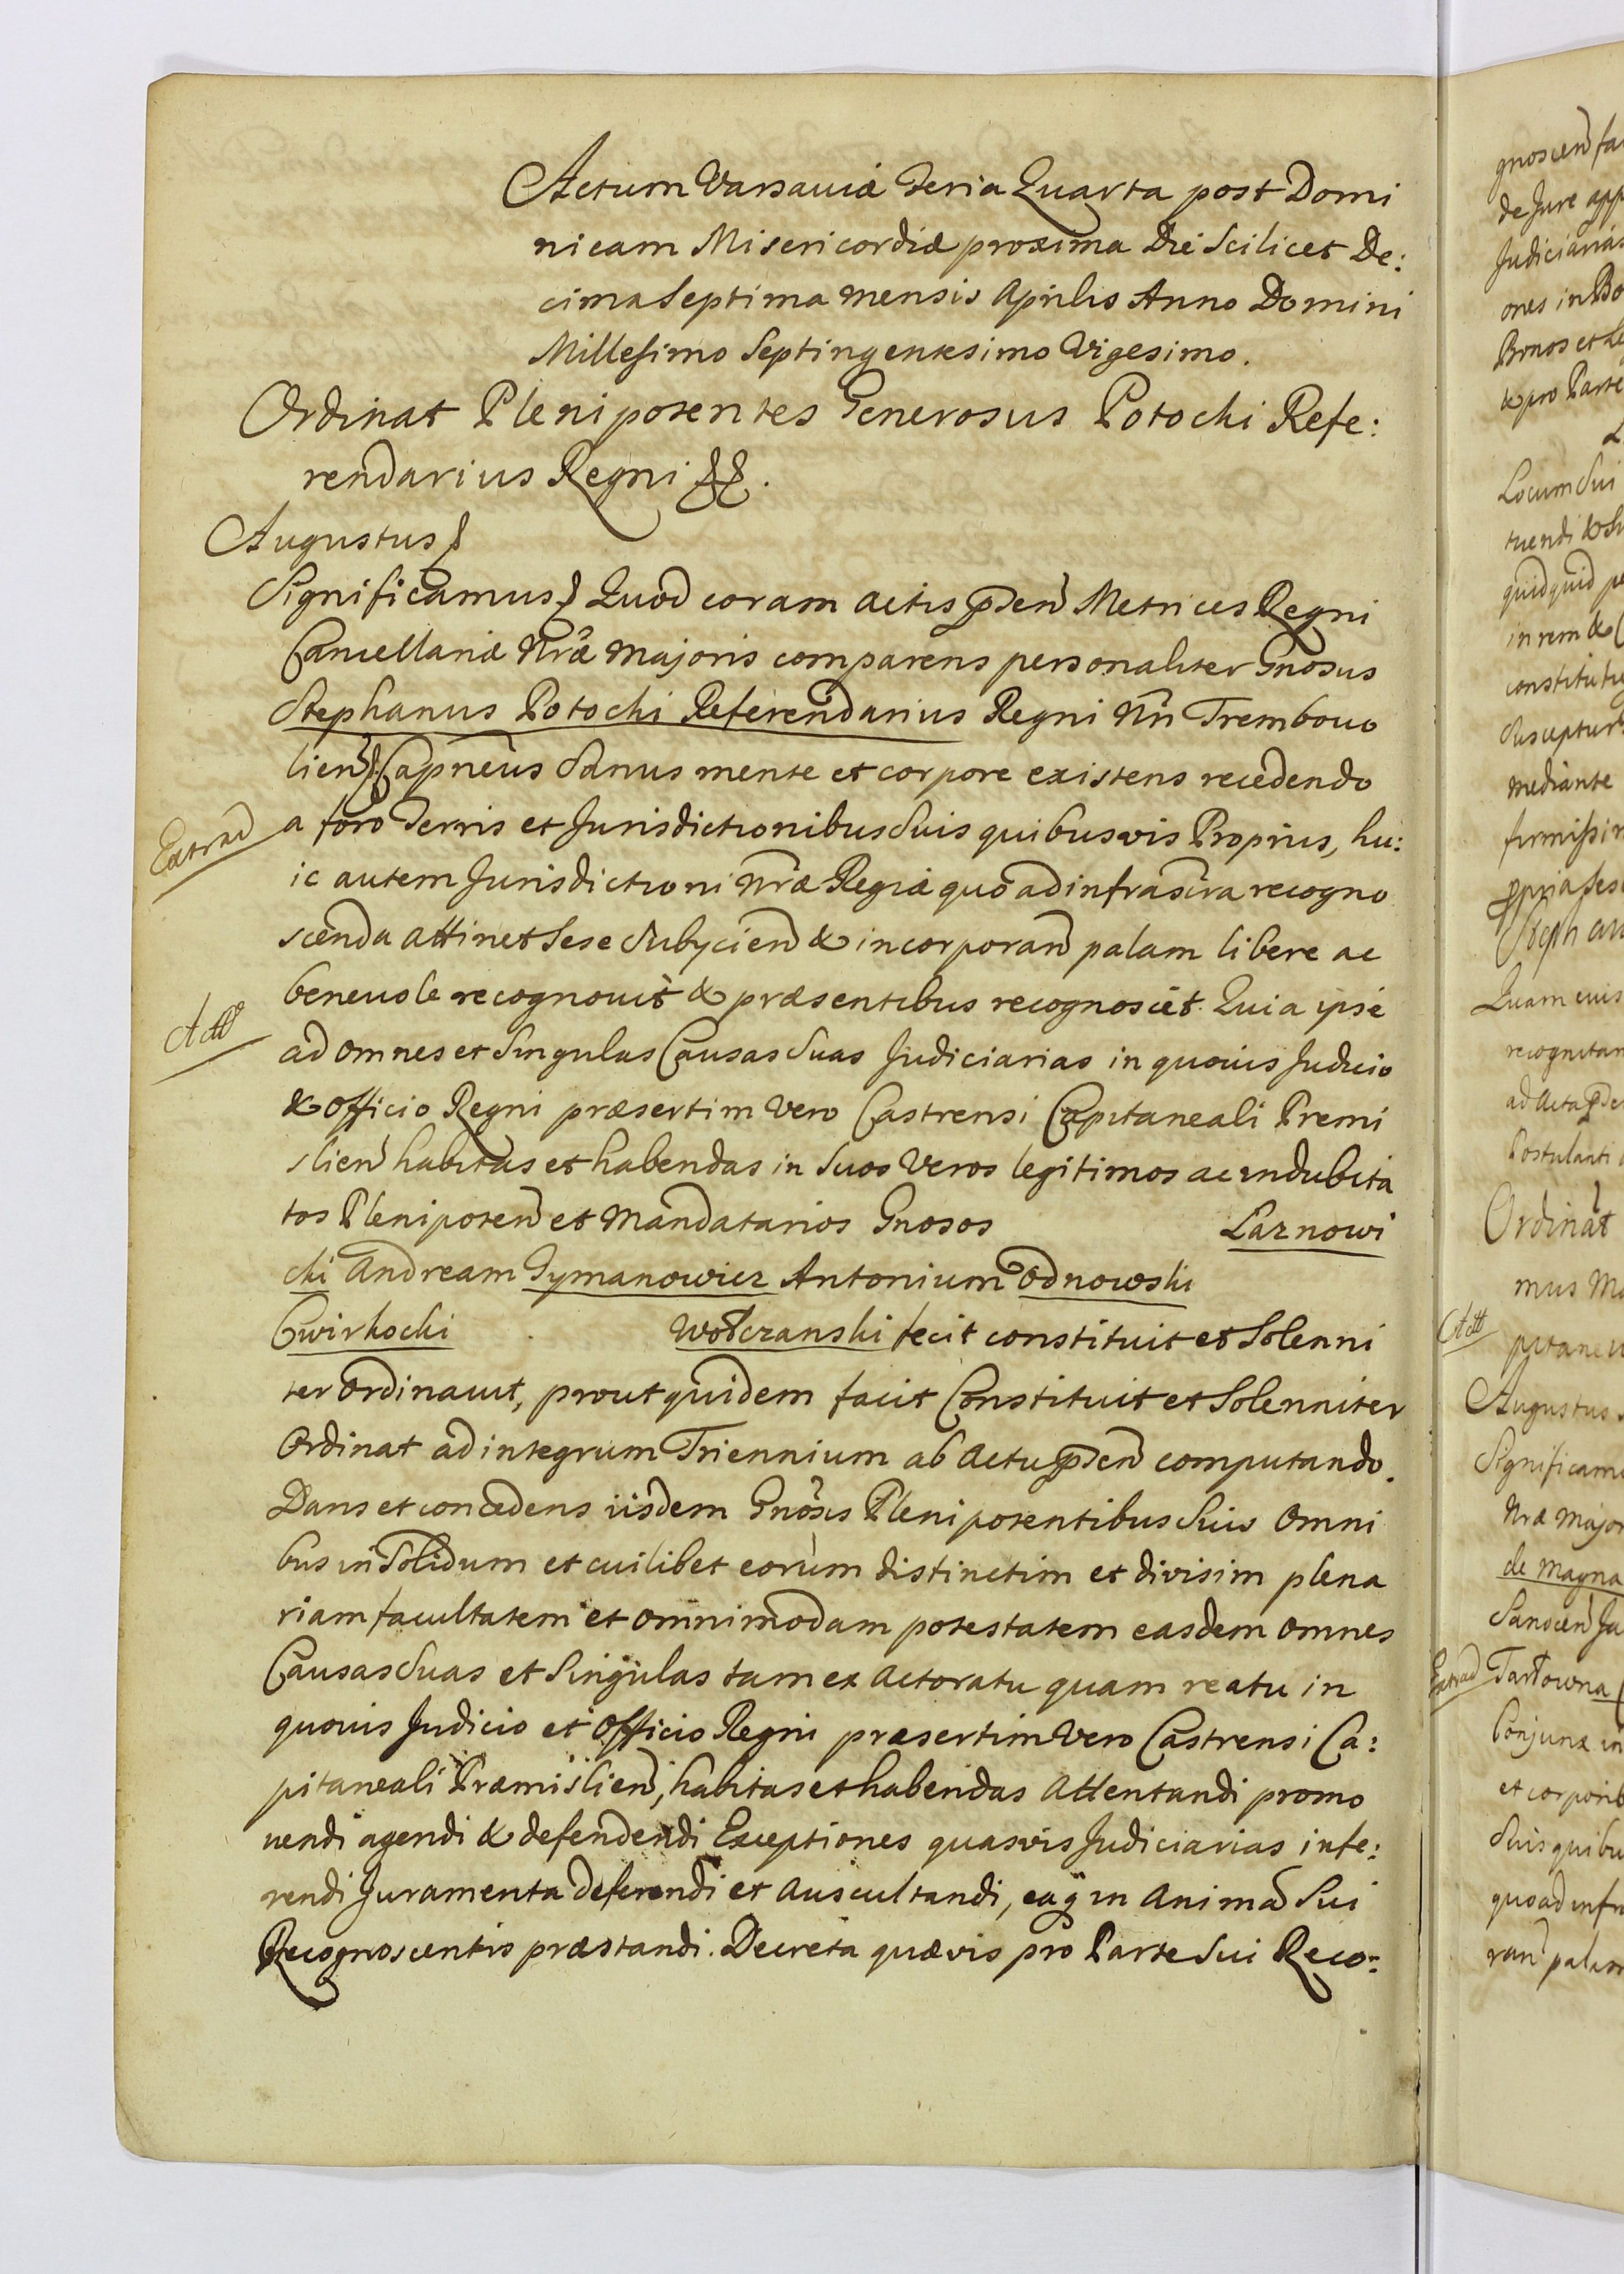 Actum Varsaviæ Feria Quarta post Domi
nicam Misericordiæ proxima Die Scilicet De:
cima Septima mensis Aprilis Anno Domini
Millesimo Septingentesimo Vigesimo.
Ordinat Plenipotentes Generosus Potocki Refe:
rendarius Regni
Augustus
Significamus Quod coram actis pñden Metrices Regni
Cancellariæ Nræ Majoris comparens personaliter Gnosus
Stephanus Potocki Referendarius Regni Nrı Trembovo
lien Capneus Sanus mente et corpore existens recedendo
Extrad
a foro Terris et Jurisdictionibus Suis quibusvis Propriis, hu:
ic autem Jurisdictioni Nræ Regiæ quo ad infrascra recogno
scenda attinet Sese Subijcien & incorporan palam libere ac
benevole recognovit & præsentibus recognoscit. Quia ipse
Actt
ad omnes et Singulas Causas Suas Judiciarias in quovis Judicio
& Officio Regni præsertim Vero Castrensi Capitaneali Premi
slien habitas et habendas in Suos Veros legitimos ac indubita
tos Plenipoten et Mandatarios Gnosos Laznowi
cki Andream Szymanowicz Antonium Odnowski
Cwirkocki Wołczanski fecit constituit et Solenni
ter Ordinavit, prout quidem facit Constituit et Solenniter
Ordinat ad integrum Triennium ab Actu pñden computando.
Dans et concedens iisdem Gnosis Plenipotentibus Suis Omni
bus in Solidum et cuilibet eorum distinctim et divisim plena
riam facultatem et omnimodam potestatem easdem omnes
Causas Suas et Singulas tam ex Actoratu quam reatu in
quovis Judicio et Officio Regni præsertim Vero Castrensi Ca:
pitaneali Præmislien, habitas et habendas Attentandi promo
vendi agendi & defendendi Exceptiones quasvis Judiciarias infe:
rendi Juramenta deferendi et Auscultandi, eaq in Animã Sui
Recognoscentis præstandi. Decreta quævis pro Parte Sui Reco:
gnoscen
de Jure
Judiciarias
ones in
Bonos et
& pro Parte
Locum Sui
tuendi
quidquid
in rem &
mediante
Quam
Postulanti
Ordinat
mus
Actt
Augustus
Significam
Nræ Major
de Magna
Sanocen
Extrad
Tarłowna
Conjunx in
et corporib
Suis quibu
quo ad infra
ran palam